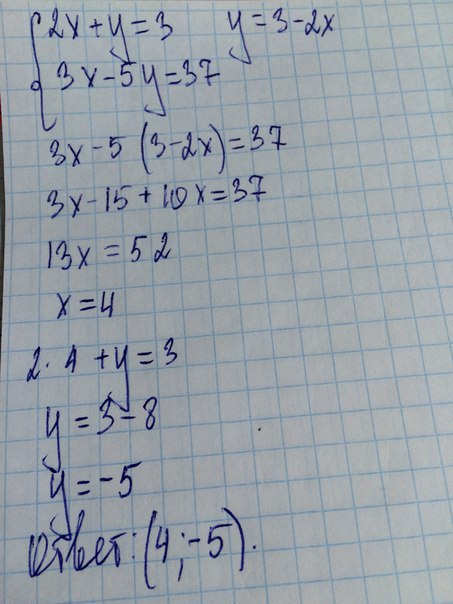 2x+y=3 y=3-2x
3x-5y=37
3x-5(3-2x)=37
3x-15+10x=37
13x=52
x=4
2·4+y=3
y=3-8
y=-5
Ответ: (4;-5).